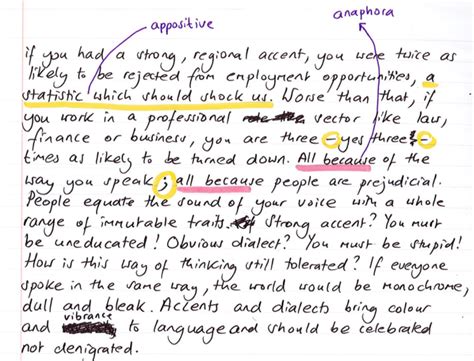 appositive
anaphora
if you had a strong, regional accent, you were twice as
likely to be rejected from employment opportunities, a
statistic which should shock us. Worse than that, if
you work in a professional vector like law,
finance or business, you are three - yes three! -
times as likely to be turned down. All because of the
way you speak; all because people are prejudicial.
People equate the sound of your voice with a whole
range of immutable traits. Strong accent? You must
be uneducated! Obvious dialect? You must be stupid!
How is this way of thinking still tolerated? If everyone
spoke in the same way, the world would be monochrome,
dull and bleak. Accents and dialects bring colour
and vibrance to language and should be celebrated
not denigrated.